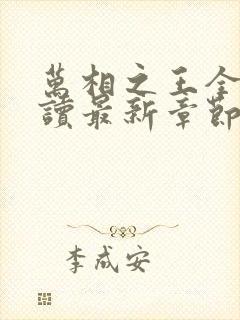 萬相之王全
讀最新章節
李成安